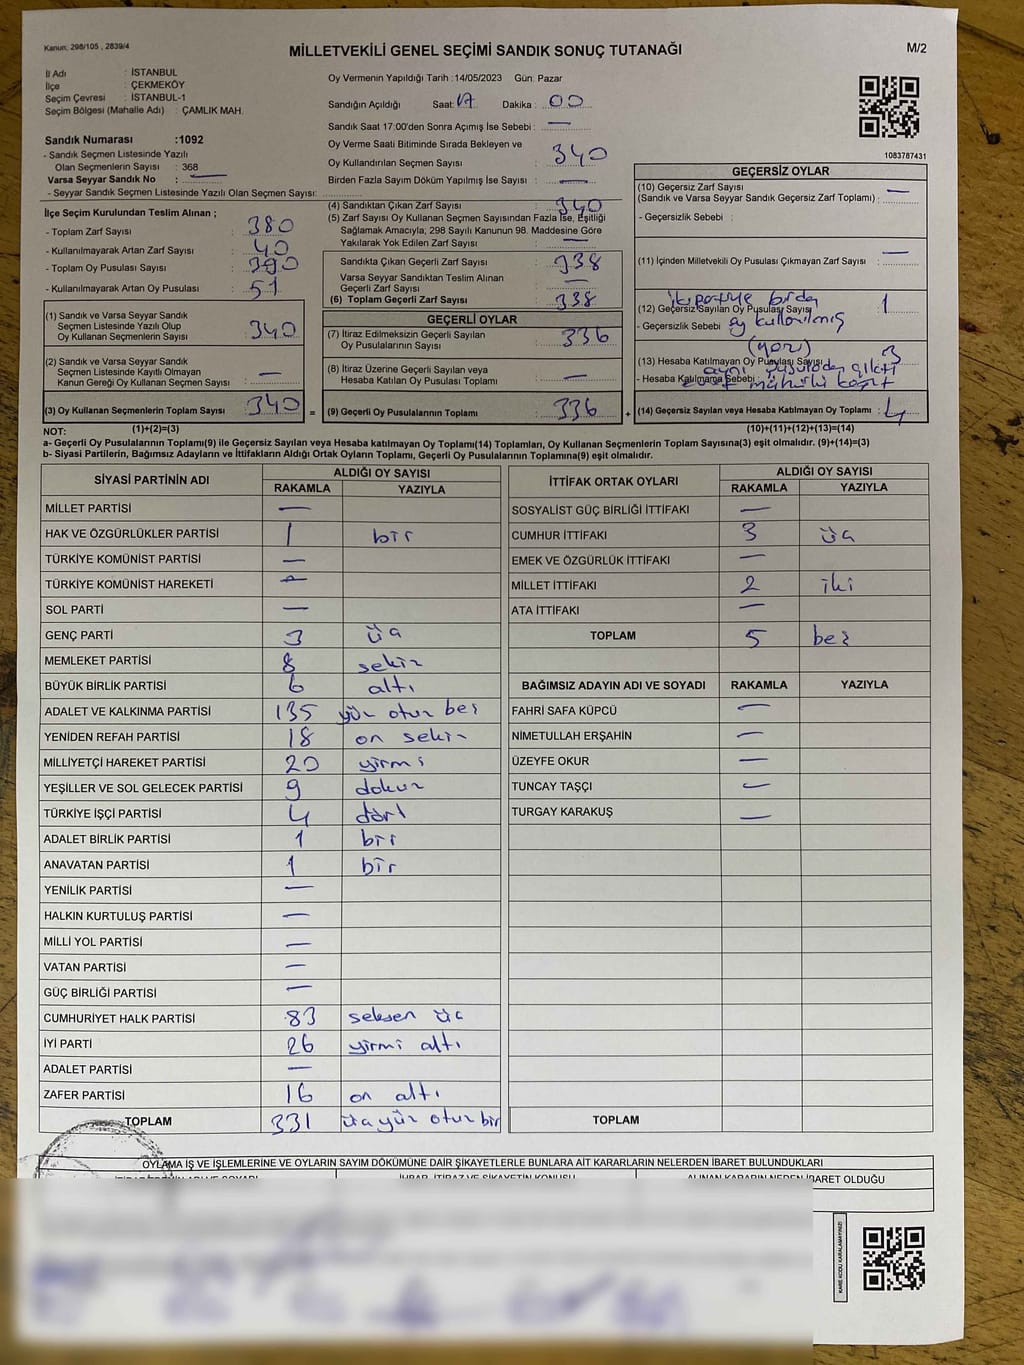 Kanun: 298/105 , 2839/4
MİLLETVEKİLİ GENEL SEÇİMİ SANDIK SONUÇ TUTANAĞI
M/2
İl Adı : İSTANBUL
İlçe : ÇEKMEKÖY
Seçim Çevresi : İSTANBUL-1
Seçim Bölgesi (Mahalle Adı) : ÇAMLIK MAH.
Sandık Numarası :1092
- Sandık Seçmen Listesinde Yazılı
Olan Seçmenlerin Sayısı : 368
Varsa Seyyar Sandık No : —
- Seyyar Sandık Seçmen Listesinde Yazılı Olan Seçmen Sayısı:
Oy Vermenin Yapıldığı Tarih :14/05/2023 Gün: Pazar
Sandığın Açıldığı Saat: 17 Dakika : 00
Sandık Saat 17:00'den Sonra Açımış İse Sebebi : —
Oy Verme Saati Bitiminde Sırada Bekleyen ve
Oy Kullandırılan Seçmen Sayısı : 340
Birden Fazla Sayım Döküm Yapılmış İse Sayısı : —
1083787431
İlçe Seçim Kurulundan Teslim Alınan ;
- Toplam Zarf Sayısı : 380
- Kullanılmayarak Artan Zarf Sayısı : 40
- Toplam Oy Pusulası Sayısı : 390
- Kullanılmayarak Artan Oy Pusulası : 51
(1) Sandık ve Varsa Seyyar Sandık
Seçmen Listesinde Yazılı Olup
Oy Kullanan Seçmenlerin Sayısı : 340
(2) Sandık ve Varsa Seyyar Sandık
Seçmen Listesinde Kayıtlı Olmayan
Kanun Gereği Oy Kullanan Seçmen Sayısı : —
(3) Oy Kullanan Seçmenlerin Toplam Sayısı : 340 =
(4) Sandıktan Çıkan Zarf Sayısı : 340
(5) Zarf Sayısı Oy Kullanan Seçmen Sayısından Fazla İse, Eşitliği
Sağlamak Amacıyla; 298 Sayılı Kanunun 98. Maddesine Göre
Yakılarak Yok Edilen Zarf Sayısı : —
Sandıkta Çıkan Geçerli Zarf Sayısı : 338
Varsa Seyyar Sandıktan Teslim Alınan
Geçerli Zarf Sayısı : —
(6) Toplam Geçerli Zarf Sayısı : 338
GEÇERLİ OYLAR
(7) İtiraz Edilmeksizin Geçerli Sayılan
Oy Pusulalarının Sayısı : 336
(8) İtiraz Üzerine Geçerli Sayılan veya
Hesaba Katılan Oy Pusulası Toplamı : —
(9) Geçerli Oy Pusulalarının Toplamı : 336 +
GEÇERSİZ OYLAR
(10) Geçersiz Zarf Sayısı
(Sandık ve Varsa Seyyar Sandık Geçersiz Zarf Toplamı) : —
- Geçersizlik Sebebi :
(11) İçinden Milletvekili Oy Pusulası Çıkmayan Zarf Sayısı : —
iki partiye birden
(12) Geçersiz Sayılan Oy Pusulası Sayısı : 1
- Geçersizlik Sebebi oy kullanılmış
(13) Hesaba Katılmayan Oy Pusulası Sayısı : 3
- Hesaba Katılmama Sebebi mühürlü
(14) Geçersiz Sayılan veya Hesaba Katılmayan Oy Toplamı : 4
NOT: (1)+(2)=(3) (10)+(11)+(12)+(13)=(14)
a- Geçerli Oy Pusulalarının Toplamı(9) ile Geçersiz Sayılan veya Hesaba katılmayan Oy Toplamı(14) Toplamları, Oy Kullanan Seçmenlerin Toplam Sayısına(3) eşit olmalıdır. (9)+(14)=(3)
b- Siyasi Partilerin, Bağımsız Adayların ve İttifakların Aldığı Ortak Oyların Toplamı, Geçerli Oy Pusulalarının Toplamına(9) eşit olmalıdır.
SİYASİ PARTİNİN ADI ALDIĞI OY SAYISI
RAKAMLA YAZIYLA
MİLLET PARTİSİ —
HAK VE ÖZGÜRLÜKLER PARTİSİ 1 bir
TÜRKİYE KOMÜNİST PARTİSİ —
TÜRKİYE KOMÜNİST HAREKETİ —
SOL PARTİ —
GENÇ PARTİ 3 üç
MEMLEKET PARTİSİ 8 sekiz
BÜYÜK BİRLİK PARTİSİ 6 altı
ADALET VE KALKINMA PARTİSİ 135 yüz otuz beş
YENİDEN REFAH PARTİSİ 18 on sekiz
MİLLİYETÇİ HAREKET PARTİSİ 20 yirmi
YEŞİLLER VE SOL GELECEK PARTİSİ 9 dokuz
TÜRKİYE İŞÇİ PARTİSİ 4 dört
ADALET BİRLİK PARTİSİ 1 bir
ANAVATAN PARTİSİ 1 bir
YENİLİK PARTİSİ —
HALKIN KURTULUŞ PARTİSİ —
MİLLİ YOL PARTİSİ —
VATAN PARTİSİ —
GÜÇ BİRLİĞİ PARTİSİ —
CUMHURİYET HALK PARTİSİ 83 seksen üç
İYİ PARTİ 26 yirmi altı
ADALET PARTİSİ —
ZAFER PARTİSİ 16 on altı
TOPLAM 331 üçyüz otuz bir
İTTİFAK ORTAK OYLARI ALDIĞI OY SAYISI
RAKAMLA YAZIYLA
SOSYALİST GÜÇ BİRLİĞİ İTTİFAKI —
CUMHUR İTTİFAKI 3 üç
EMEK VE ÖZGÜRLÜK İTTİFAKI —
MİLLET İTTİFAKI 2 iki
ATA İTTİFAKI —
TOPLAM 5 beş
BAĞIMSIZ ADAYIN ADI VE SOYADI RAKAMLA YAZIYLA
FAHRİ SAFA KÜPCÜ —
NİMETULLAH ERŞAHİN —
ÜZEYFE OKUR —
TUNCAY TAŞÇI —
TURGAY KARAKUŞ —
TOPLAM
OYLAMA İŞ VE İŞLEMLERİNE VE OYLARIN SAYIM DÖKÜMÜNE DAİR ŞİKAYETLERLE BUNLARA AİT KARARLARIN NELERDEN İBARET BULUNDUKLARI
İHBAR, İTİRAZ VE ŞİKAYETİN KONUSU ALINAN KARARIN NEDEN İBARET OLDUĞU
KARE KODU KARALAMAYINIZ!